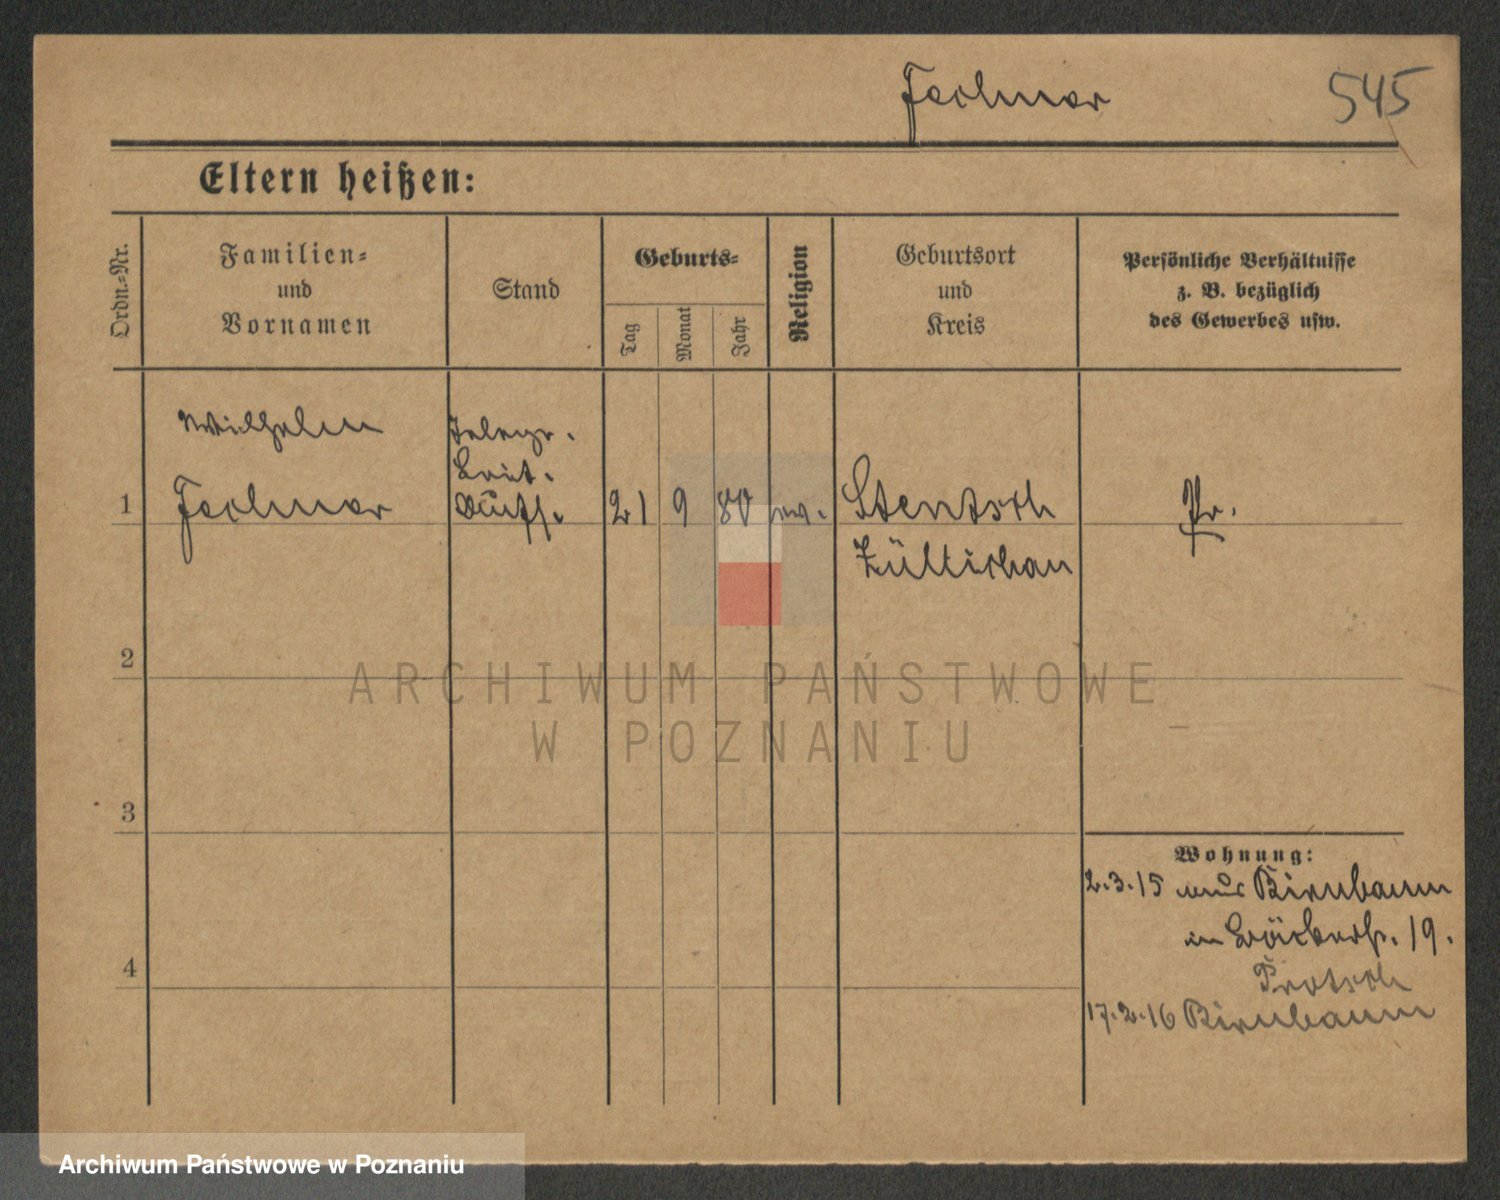 Fechner
545
Eltern heißen:
Ordn.-Nr.
Familien-
und
Vornamen
Stand
Geburts-
Tag
Monat
Jahr
Religion
Geburtsort
und
Kreis
Persönliche Verhältnisse
z. B. bezüglich
des Gewerbes usw.
Wilhelm
Telegr.
Leit.
Aufs.
1
Fechner
21
9
80
ev.
Stentsch
Züllichau
Pr.
2
3
4
Wohnung:
2.3.15 aus Birnbaum
19.
17.2.16 Birnbaum
ARCHIWUM PAŃSTWOWE
W POZNANIU
Archiwum Państwowe w Poznaniu